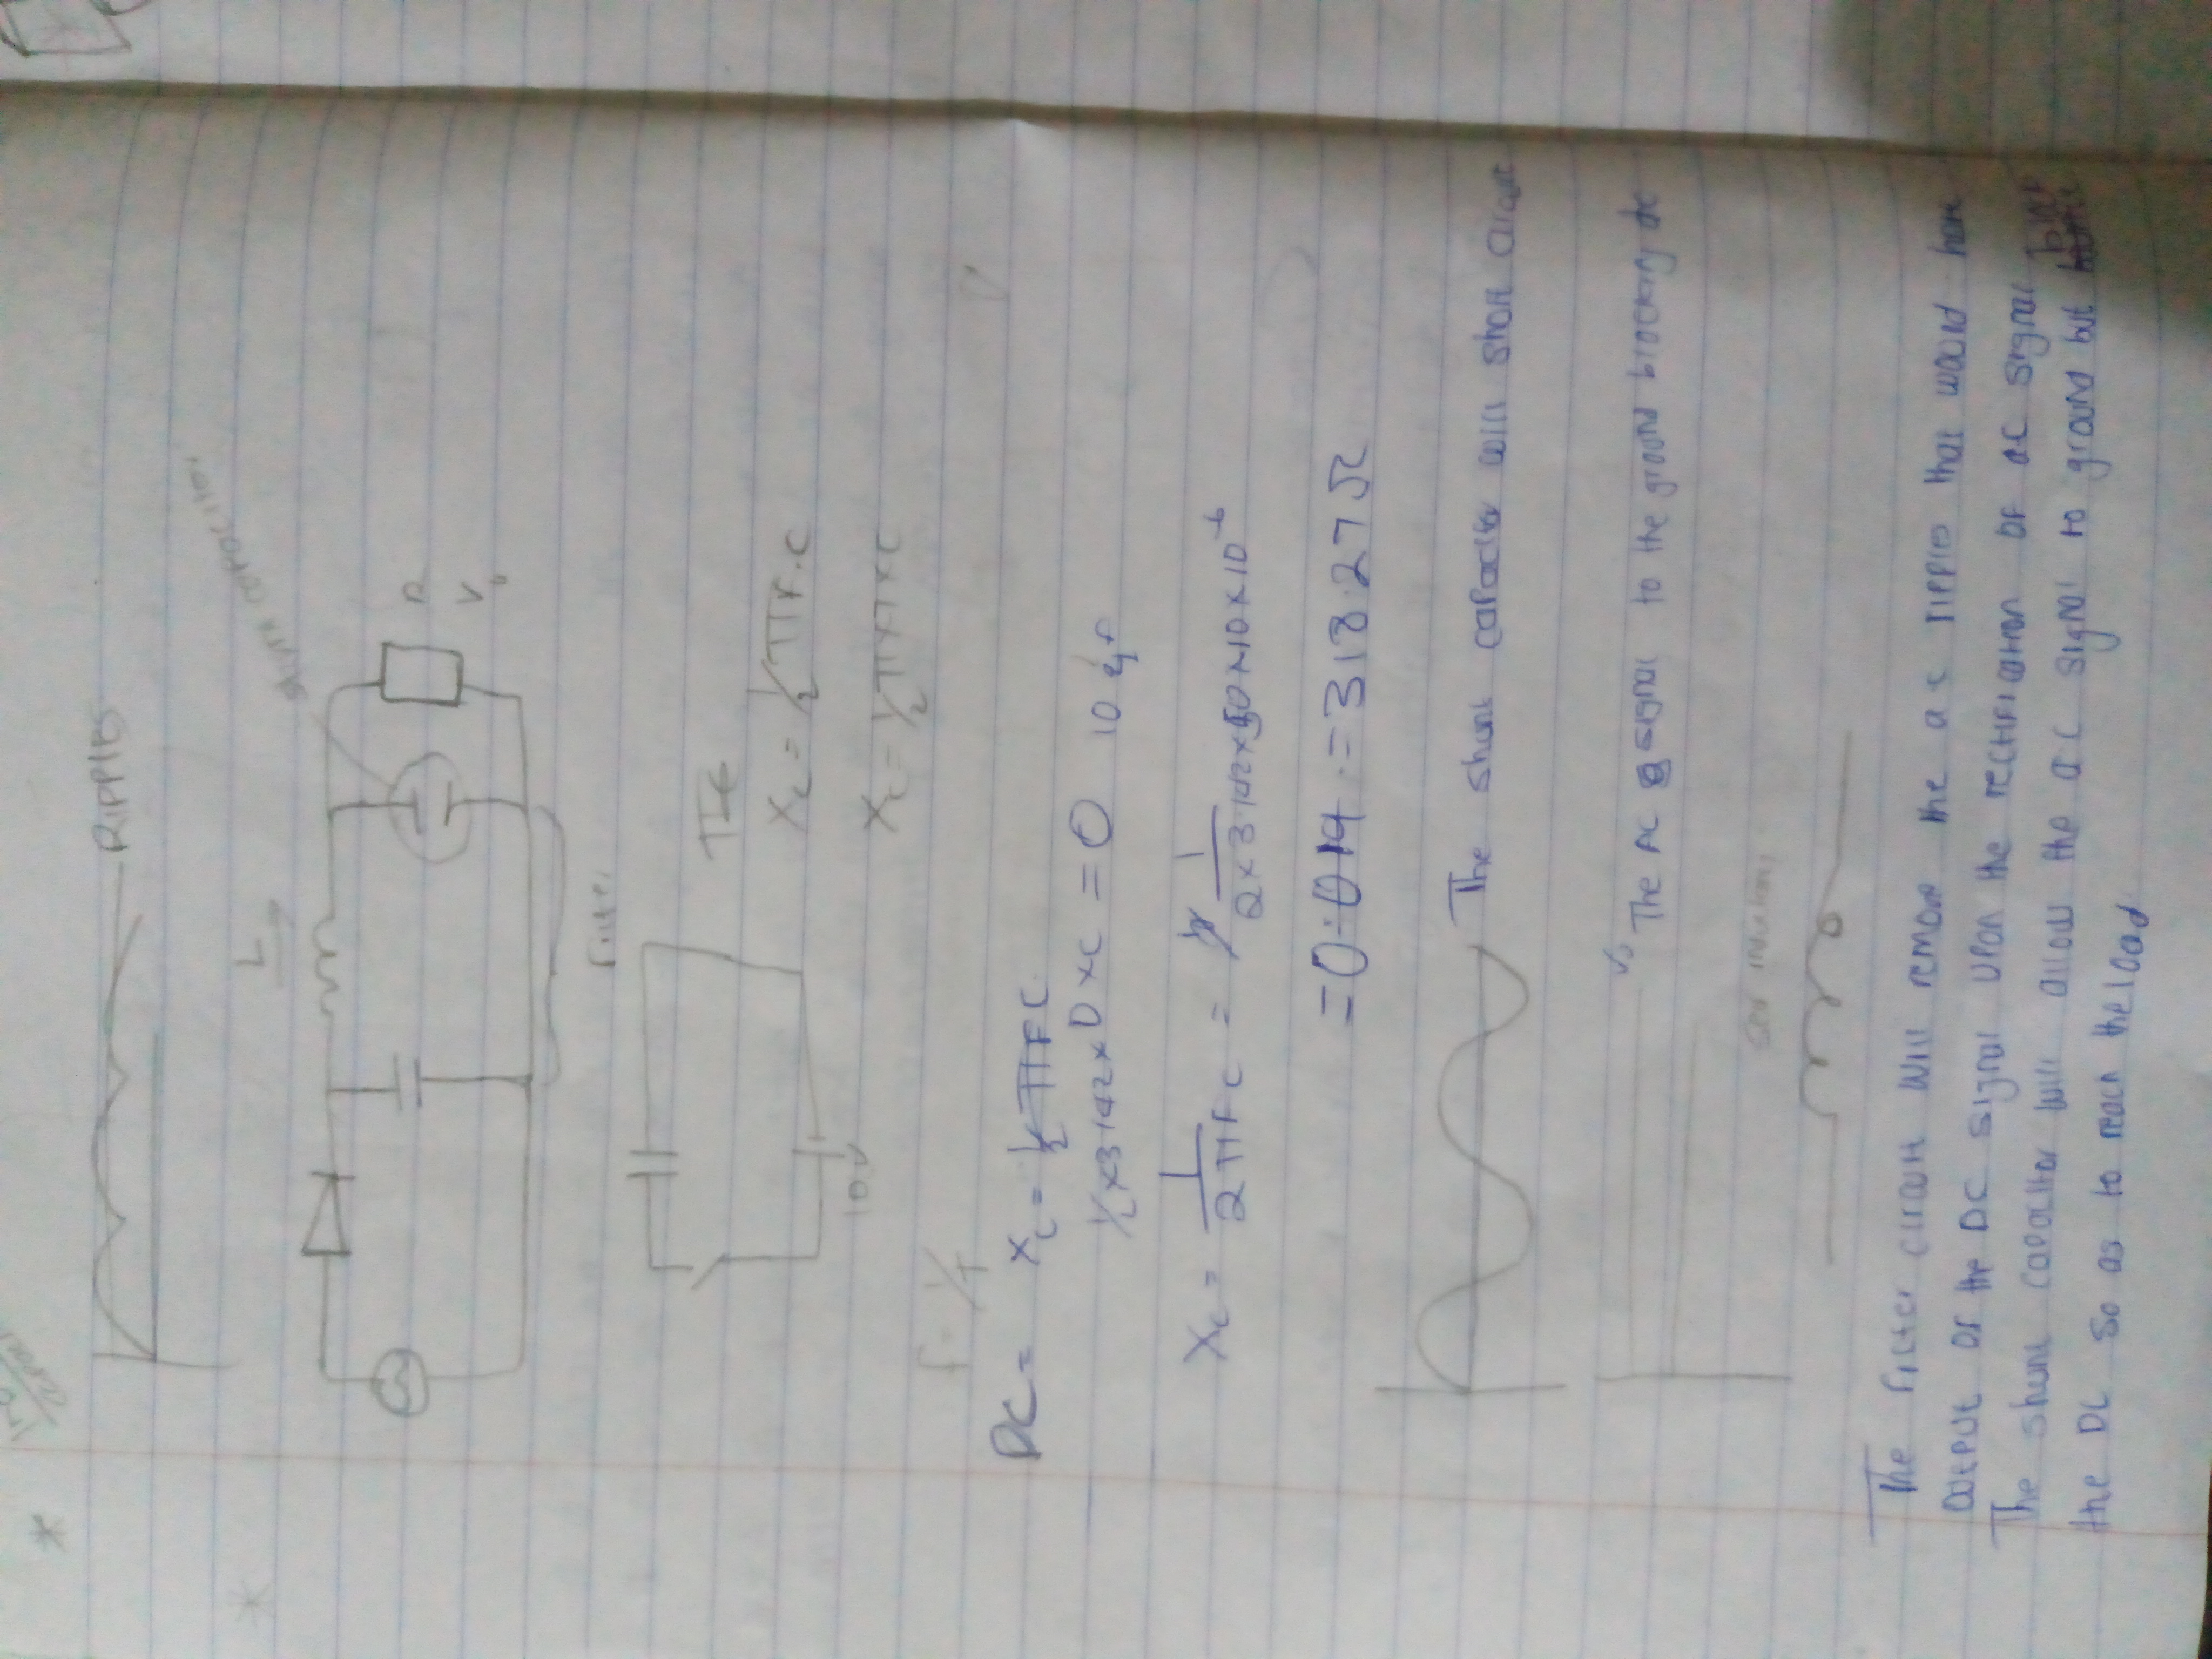 RIPPLES
L
shunt capacitor
R
Vo
Filter
10V
Xc = 1/2 πF.C
f = 1/T
DC = Xc = 1/2 πFC
1/2 x 3.142 x 0 x C = 0 10
Xc = 1/2πFC = 1/2 x 3.142 x 50 x 10 x 10^-6
= 0.019 = 318.27Ω
The shunt capacitor will short circuit
The AC signal to the ground blocking dc
The filter circuit will remove the ac ripples that would have
output of the DC signal upon the rectification of ac signal
The shunt capacitor will allow the ac signal to ground but block
the DC so as to reach the load